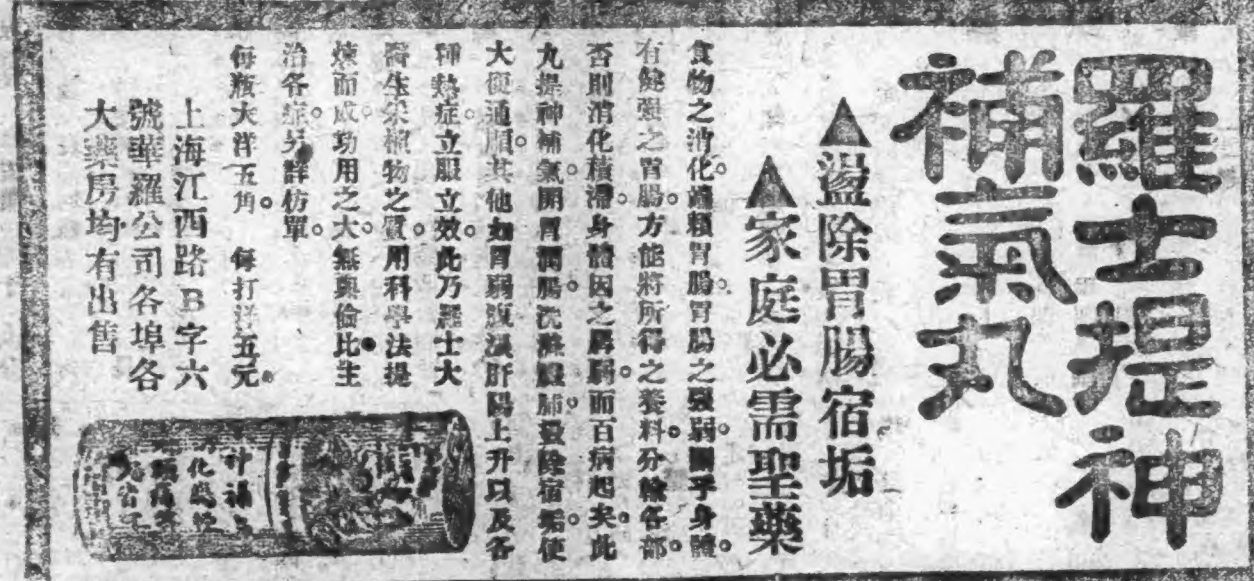 羅士提神
補氣丸
▲盪除胃腸宿垢
▲家庭必需聖藥
食物之消化。端賴胃腸。胃腸之强弱。關乎身體。
有健强之胃腸。方能將所得之養料。分輸各部。
否則消化積滯。身體因之孱弱。而百病起矣。此
丸提神補氣。開胃潤腸。洗滌臟腑。盪除宿垢。使
大便通順。其他如胃弱腹漲肝陽上升以及各
種熱症。立服立效。此乃羅士大
醫生采植物之質。用科學法提
煉而成。功用之大。無與倫比。主
治各症。另詳仿單。
每瓶大洋五角。 每打洋五元。
上海江西路B字六
號華羅公司各埠各
大藥房均有出售